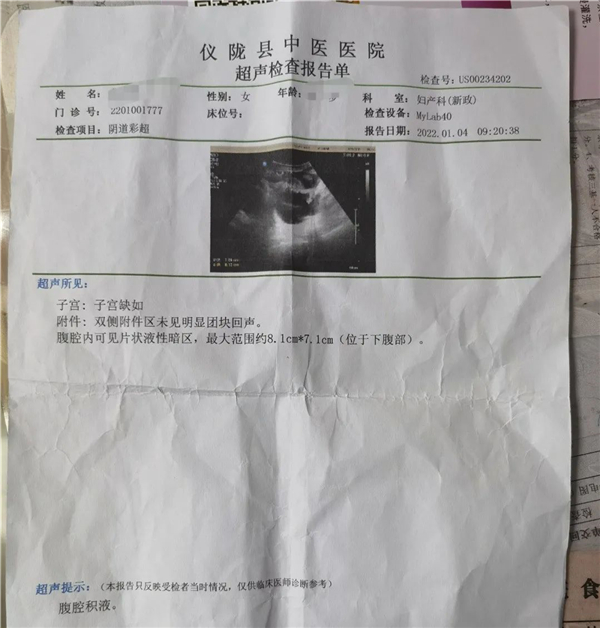 仪陇县中医医院
超声检查报告单
检查号: US00234202
姓 名: 性别: 女 年龄: 岁 科 室: 妇产科(新政)
门诊号: 2201001777 床位号: 检查设备: MyLab40
检查项目: 阴道彩超 报告日期: 2022.01.04 09:20:38
超声所见:
子宫: 子宫缺如
附件: 双侧附件区未见明显团块回声。
腹腔内可见片状液性暗区, 最大范围约8.1cm*7.1cm (位于下腹部)。
超声提示: (本报告只反映受检者当时情况, 仅供临床医师诊断参考)
腹腔积液。
食